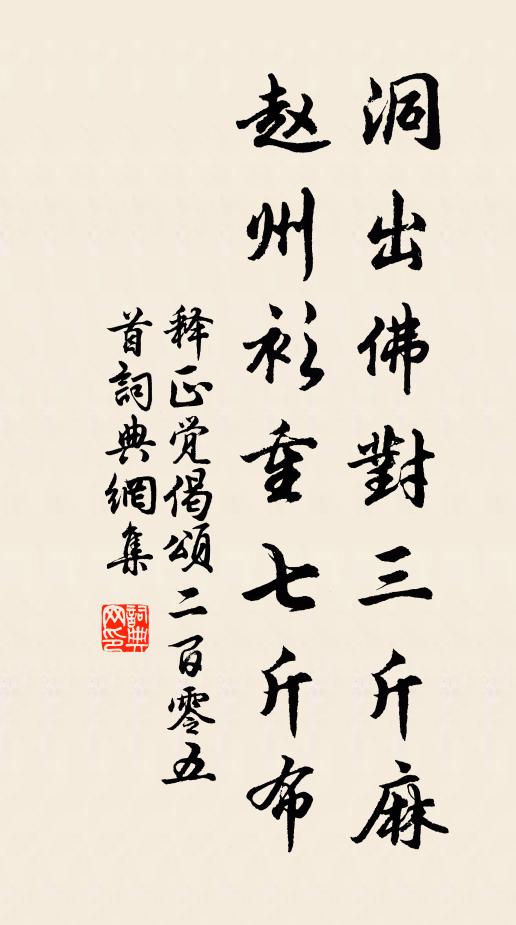 洞出佛對三斤麻
赵州衫重七斤布
释正觉偈頌二百零五
首詞典網集
詞典
网印